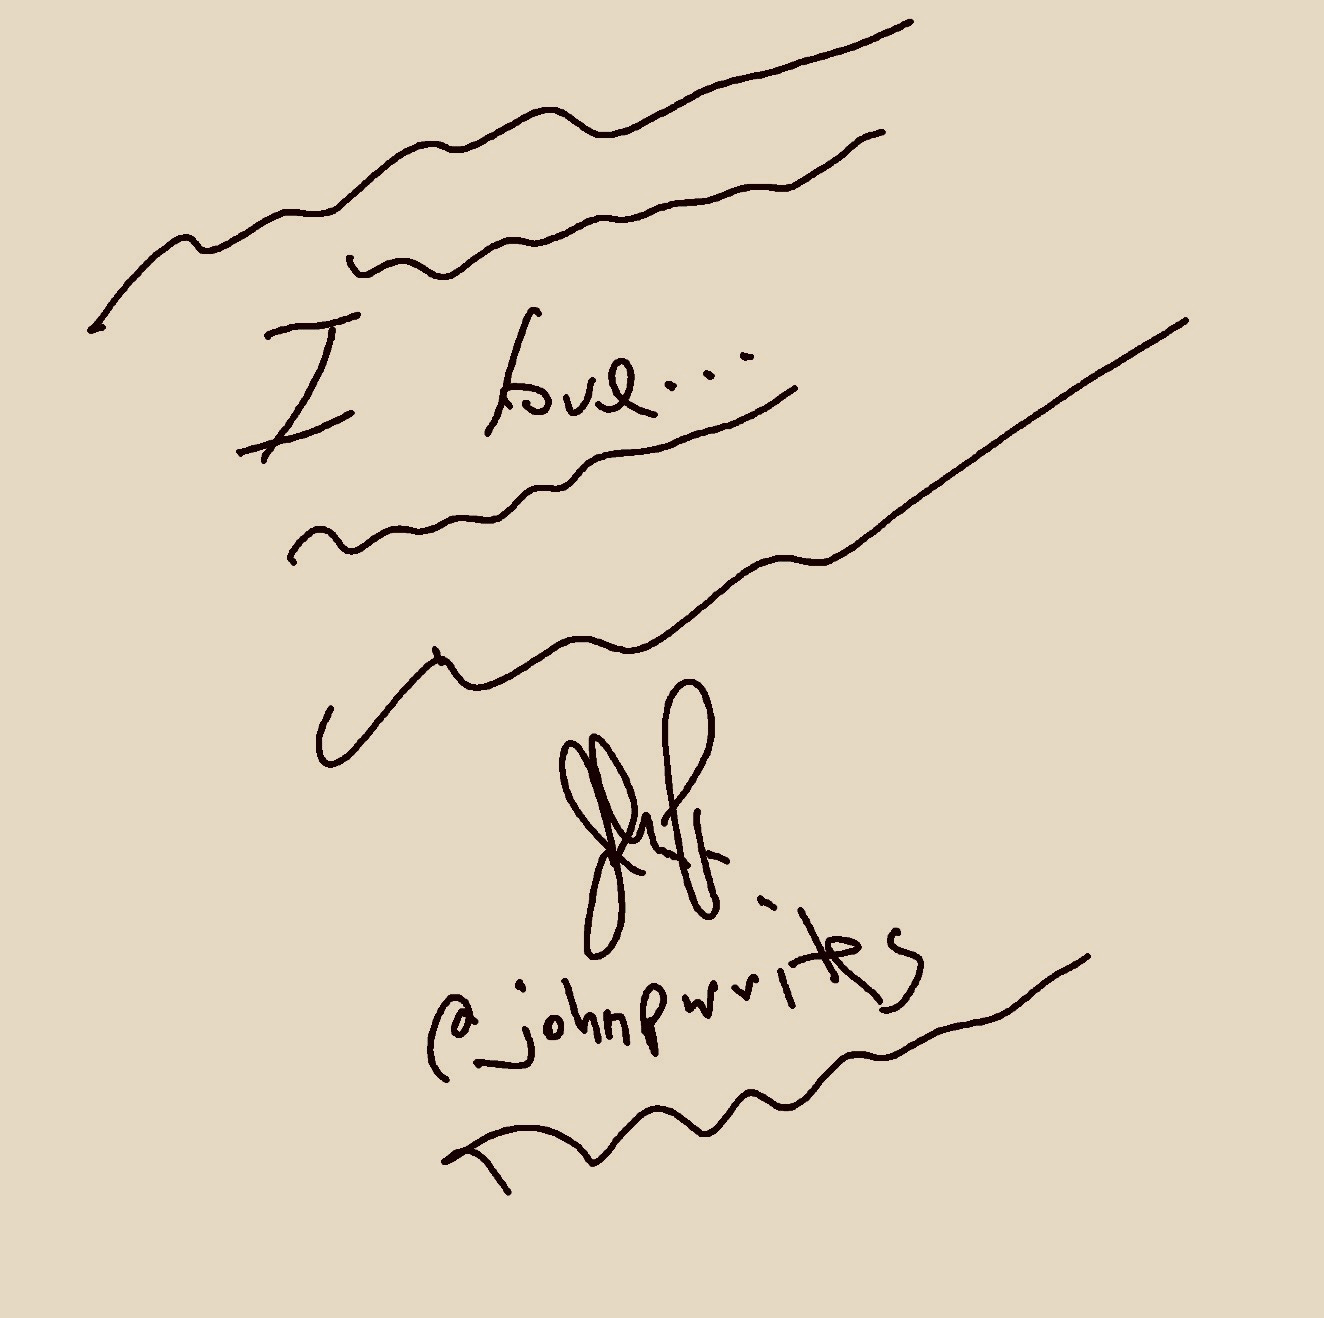 I love...
@johnpwrites